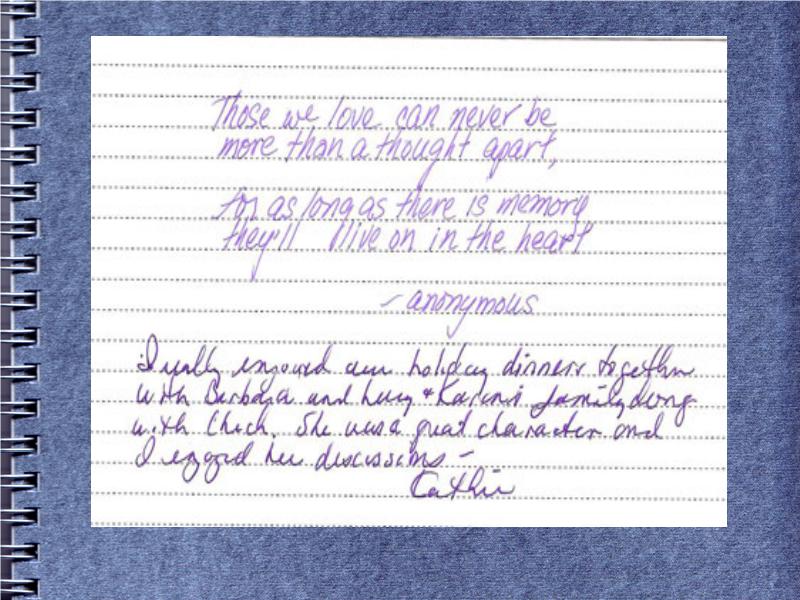 Those we love can never be
more than a thought apart,
for as long as there is memory,
they'll live on in the heart
- anonymous
I really enjoyed our holiday dinners together
with Barbara and Lucy + Karin's family along
with Chuck. She was a great character and
I enjoyed her discussions -
Cathie